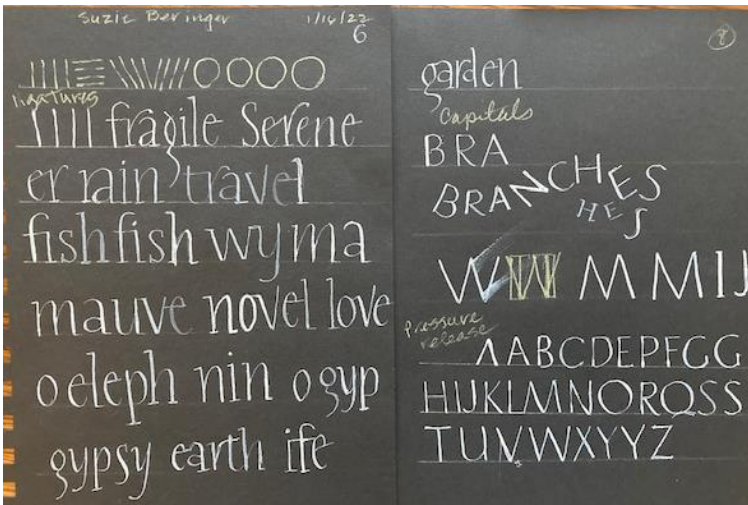 Suzie Beringer 1/16/22
6
ligatures
fragile Serene
er rain travel
fish fish wy ma
mauve novel love
o eleph nin o gyp
gypsy earth ife
garden
Capitals
BRA
BRANCHES
HES
W W M M I J
Pressure
release
A A B C D E P F G G
H I J K L M N O R Q S S
T U V W X Y Y Z